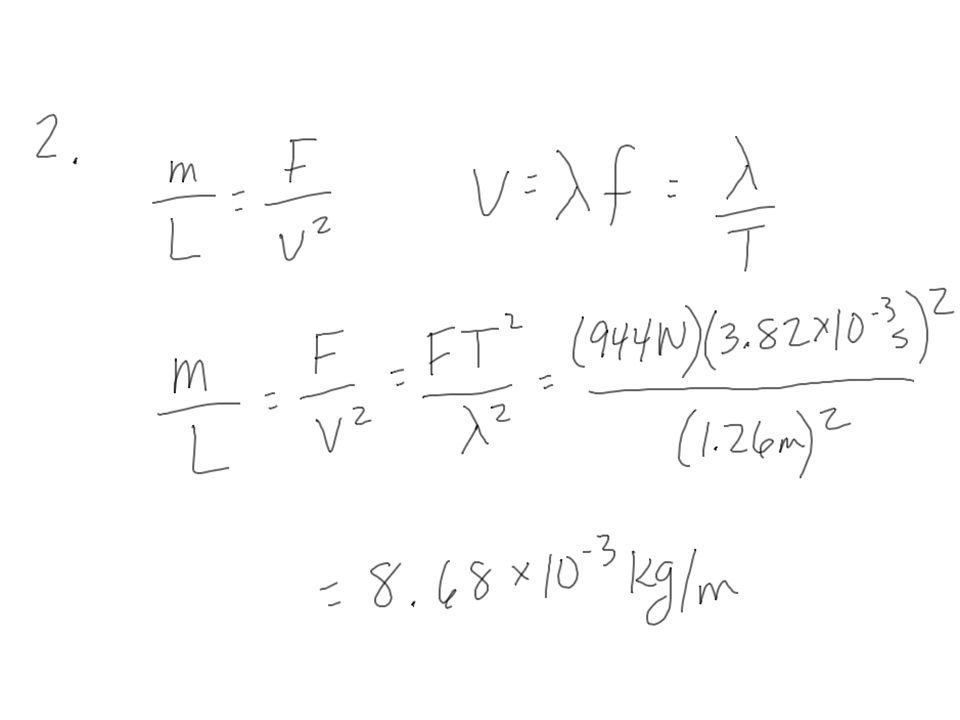 2. m/L = F/v² v = λf = λ/T
m/L = F/v² = FT²/λ² = (944N)(3.82×10⁻³s)²/(1.26m)²
= 8.68 × 10⁻³ kg/m